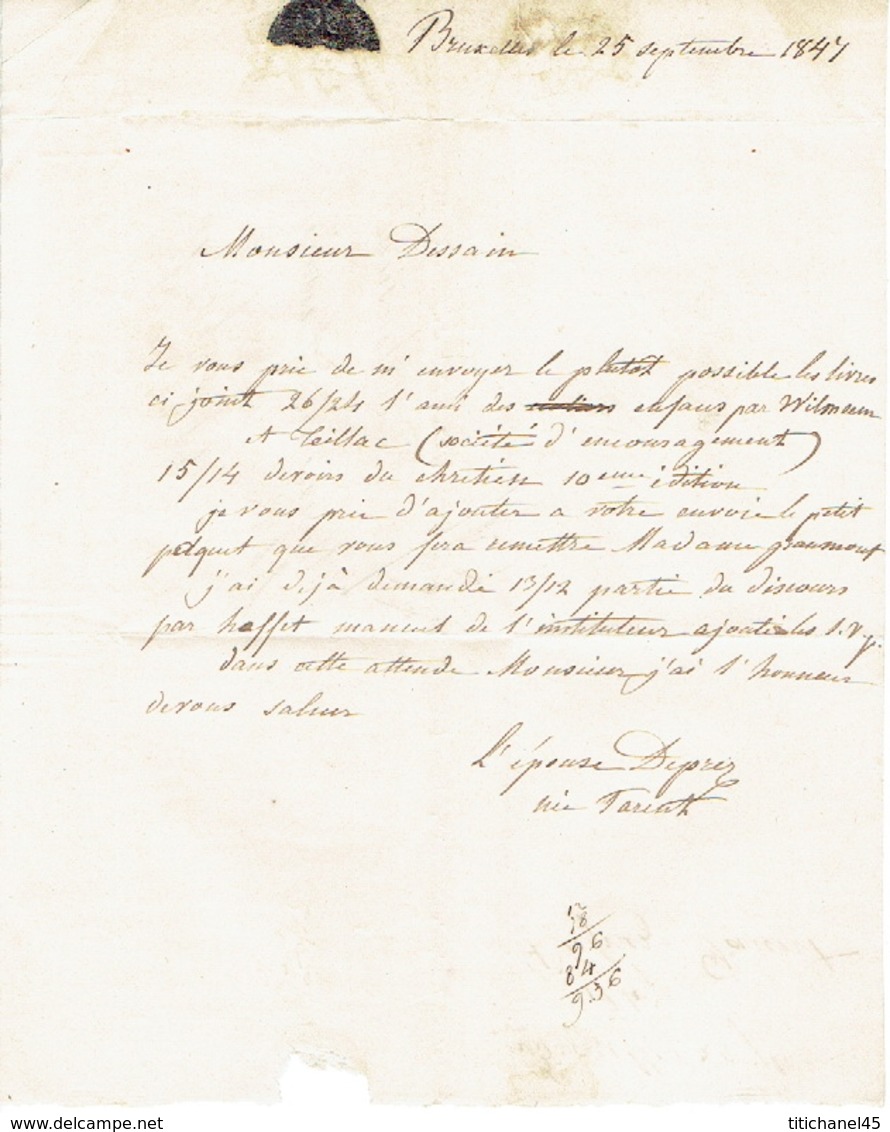 Bruxelles le 25 septembre 1847
Monsieur Dessain
Je vous prie de m'envoyer le plutot possible les livres
ci joint 26/24 l'ami des enfans par Wilmsen
A Teillac (société d'encouragement)
15/14 devoirs du chretien 10eme édition
je vous prie d'ajouter a votre envoie le petit
paquet que vous fera remettre Madame
j'ai dejà demandé 13/12 partie du discours
par haffet manuel de l'instituteur ajouté les s.v.p.
dans cette attende Monsieur j'ai l'honneur
de vous saluer
L'épouse Deprez
née Parent
18
96
84
936
titichanel45